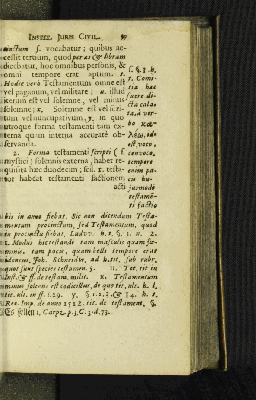 INSPEC. JURIS CIVIL. 59
cinctum s. vocabatur; quibus ac-
cessit tertium, quod per æs & libram
dicebatur, hoc omnibus personis, &
omni tempore erat aptum.
Hodie verò Testamentum omne est
vel paganum, vel militare; u. illud
iterum est vel solemne, vel minus
solemne; x. Solemne est vel scri-
ptum vel nuncupativum, y. in quo
utroque forma testamenti tam ex-
terna quàm interna accuratè ob-
servanda.
2. Forma testamenti scripti (
mystici) solennis externa, habet re-
quisita hæc duodecim; scil. 1. testa-
tor habeat testamenti factionem
acti
s. §. 1. h.
t. Comi-
tia hæc
fuere di-
cta cala-
ta
à ver-
bo
est, voco,
convoco,
tempore
enim pa-
cis hu-
jusmodi
testamē-
ti factio
bis in anno fiebat. Sic non dicendum Testa-
mentum procinctum, sed Testamentum, quod
in procinctu fiebat. Ludov. h. t. §. 1. n. 2.
t. Modus hic testandi tam masculis quam fœ-
minis, tam pacis, quam belli tempore erat
idoneus. Joh. Schneidw. ad h. tit. sub rubr.
quot sunt species testam. 5. u. Tot. tit. in
Inst. & ff. de testam. milit. x. Testamentum
minus solenne est codicillus, de quo tit. ult. h. l.
tit. ult. in ff. l. 29. y. §. 1. 2. & 14. h. t.
Rec. Imp. de anno 1512. tit. de testament. §.
Es sollen 1. Carpz. p. 3. C. 3. d. 73.